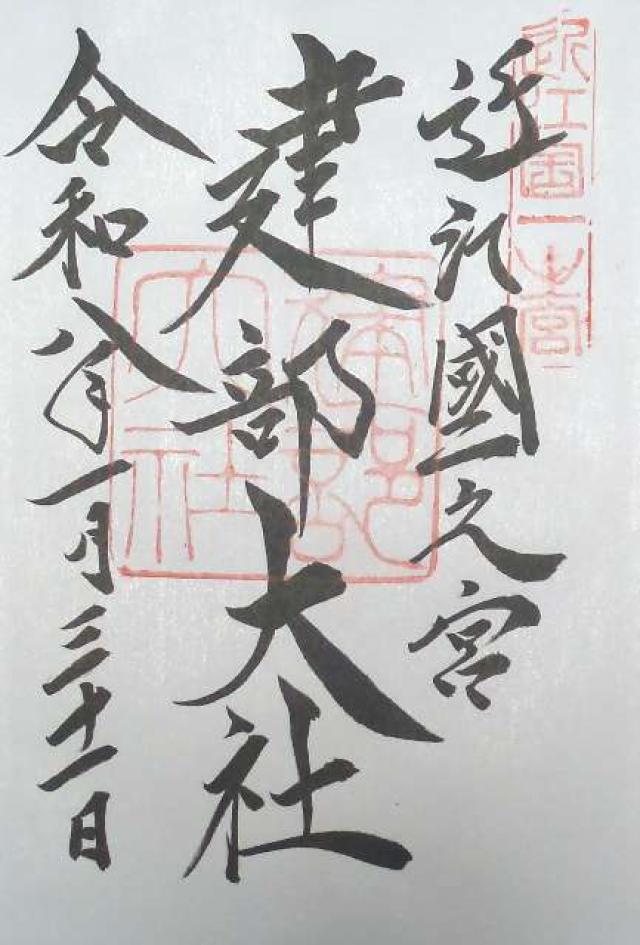 近江國一之宮
建部大社
令和八年一月三十一日
近江国一之宮
建部大社